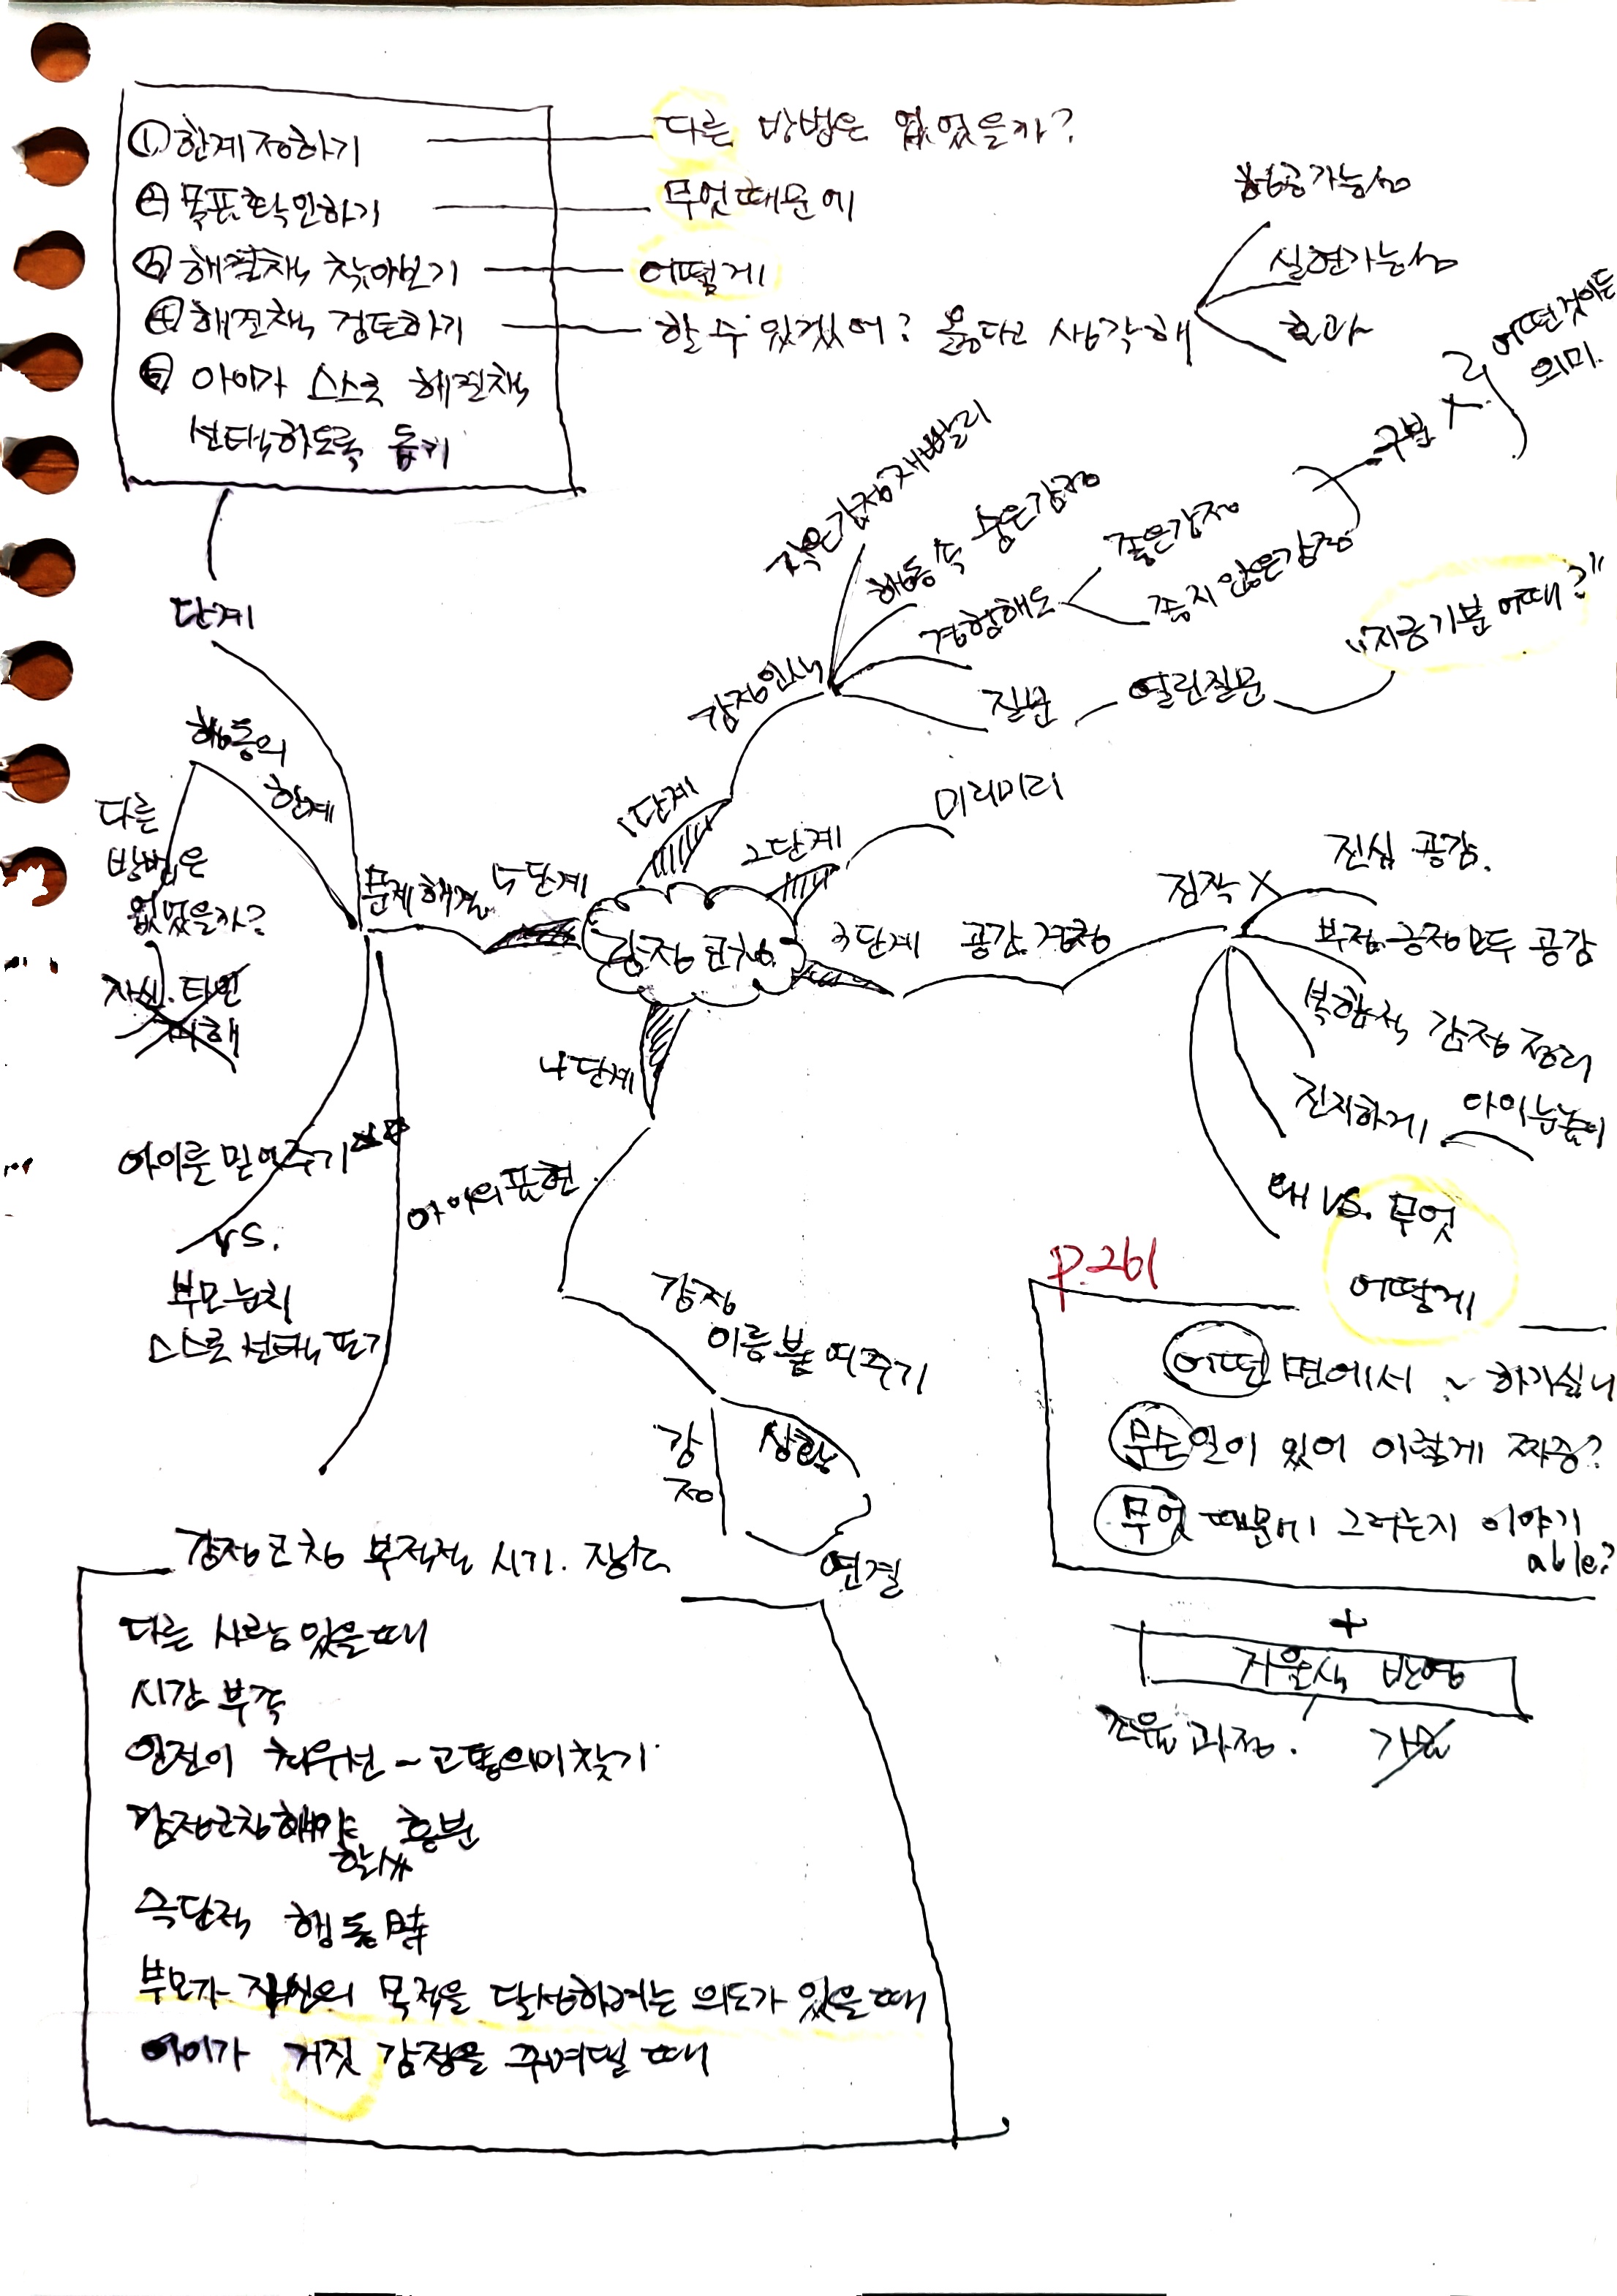 ① 한계 정하기 다른 방법은 없었을까?
② 목표 확인하기 무엇 때문에
③ 해결책 찾아보기 어떻게
④ 해결책 검토하기 할 수 있겠어? 옳다고 생각해
성공가능성
실현가능성
효과
⑤ 아이가 스스로 해결책
선택하도록 돕기
단계
행동의
한계
다른
방법은
없었을까?
자신. 타인
피해
문제해결 5단계
아이를 믿어주기
vs.
부모 눈치
스스로 선택 포기
감정코칭
1단계
감정인식
작은감정 재빨리
행동 속 숨은감정
경험해도
좋은감정
좋지 않은감정
구분 X
어떤것이든
의미.
질문
열린질문
"지금 기분 어때?"
2단계
미리미리
3단계 공감. 경청
짐작 X
진심 공감.
부정. 긍정 모두 공감
복합적 감정 정리
진지하게 아이눈높이
왜 vs. 무엇
어떻게
4단계
아이의 표현
감정
이름 붙여주기
감
정
상황
연결
p.261
어떤 면에서 ~ 하기싫니
무슨일이 있어 이렇게 짜증?
무엇 때문에 그러는지 이야기
able?
+
거울식 반영
조율 과정.
감정코칭 부적절 시기. 장소
다른 사람 있을 때
시간 부족
안전이 최우선 ~ 고통의미찾기
감정코칭해야 흥분
할 사
극단적 행동 時
부모가 자신의 목적을 달성하려는 의도가 있을 때
아이가 거짓 감정을 꾸며낼 때